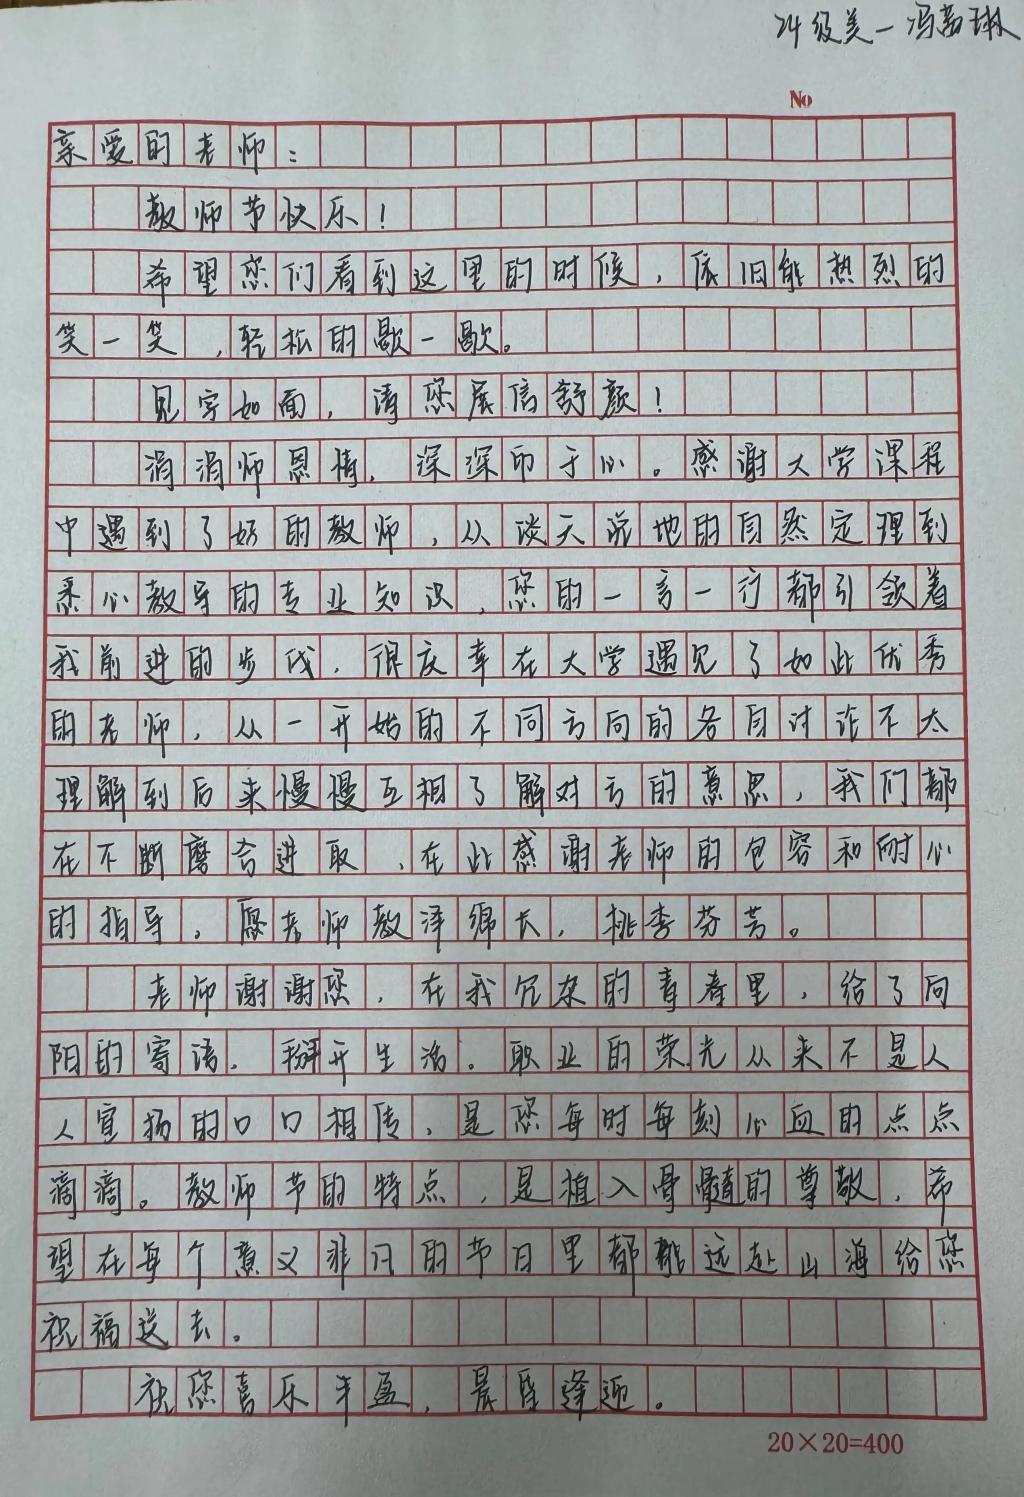 24级美一冯茜琳
No
亲爱的老师：
教师节快乐！
希望您们看到这里的时候，依旧能热烈的
笑一笑，轻松的歇一歇。
见字如面，请您展信舒颜！
涓涓师恩情，深深印于心。感谢大学课程
中遇到了好的教师，从谈天说地的自然定理到
悉心教导的专业知识，您的一言一行都引领着
我前进的步伐，很庆幸在大学遇见了如此优秀
的老师，从一开始的不同方向的各自讨论不太
理解到后来慢慢互相了解对方的意思，我们都
在不断磨合进取，在此感谢老师的包容和耐心
的指导，愿老师教泽绵长，桃李芬芳。
老师谢谢您，在我冗杂的青春里，给了向
阳的寄语，掰开生活。职业的荣光从来不是人
人宣扬的口口相传，是您每时每刻心血的点点
滴滴。教师节的特点，是植入骨髓的尊敬，希
望在每个意义非凡的节日里都能远赴山海给您
祝福送去。
祝您喜乐丰盈，晨昏逢迎。
20×20=400